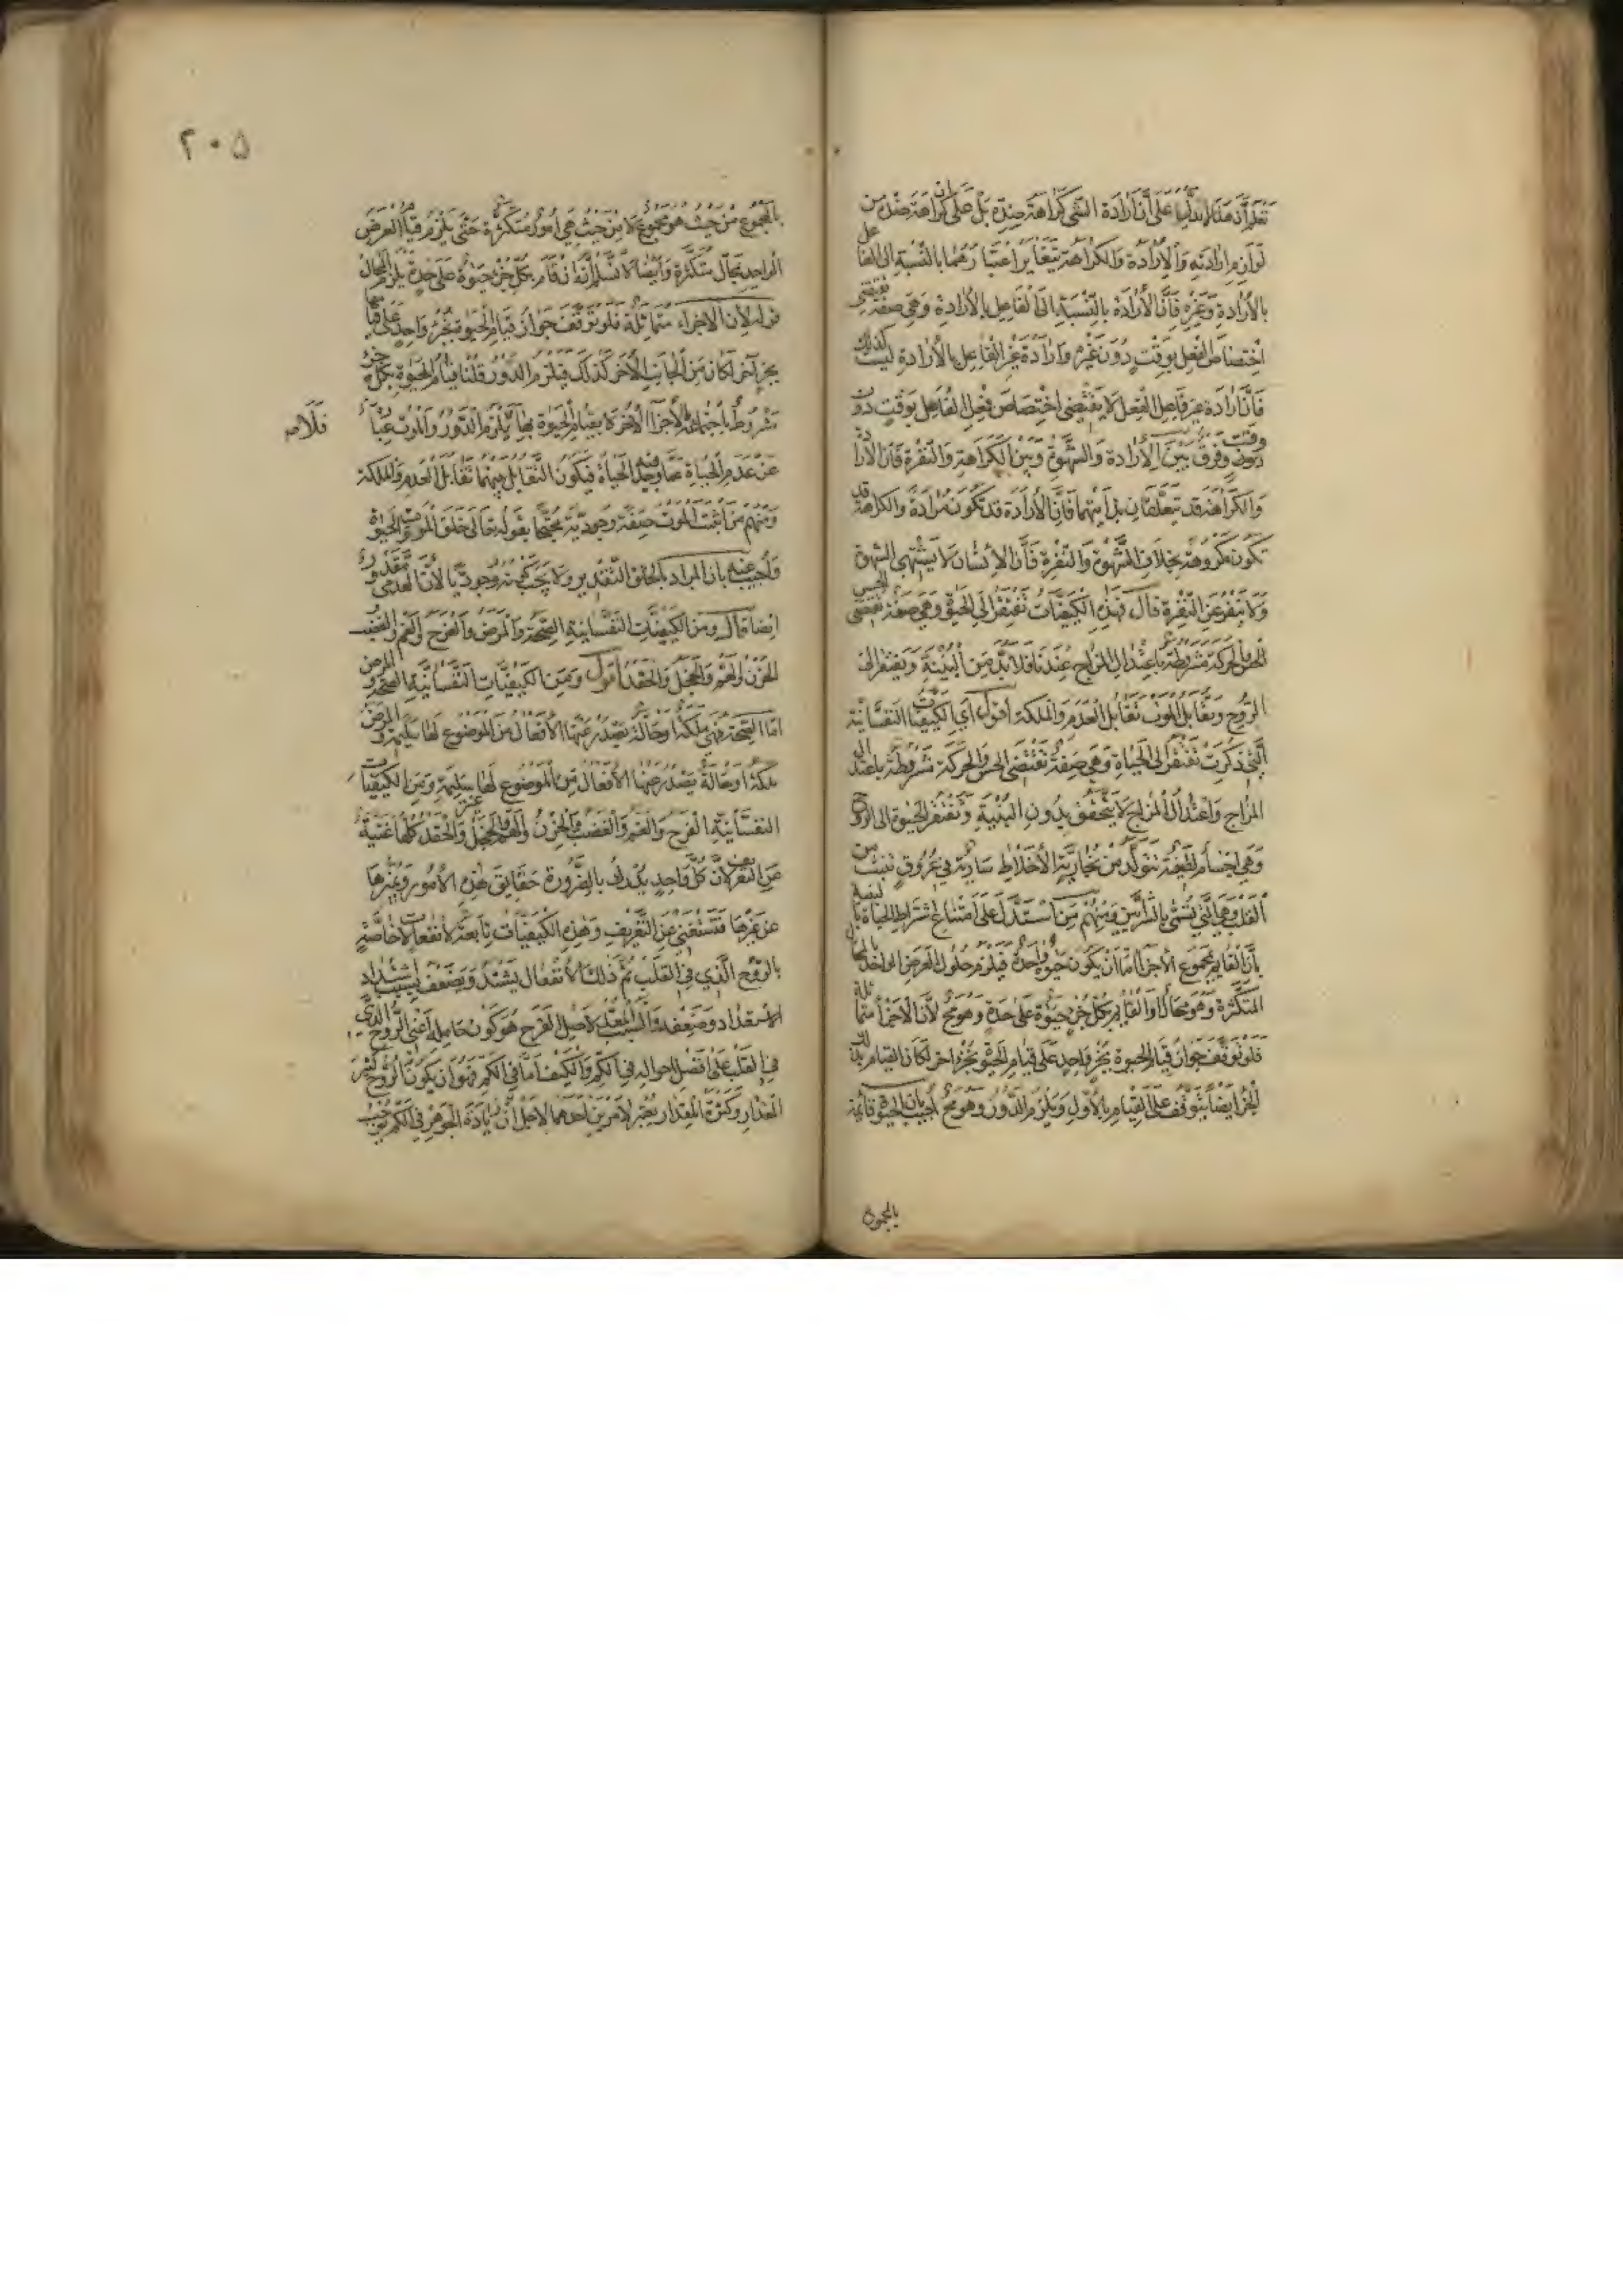 تعلم أن هذا لا يدل على أن ارادة الشي كراهة ضده بل على ان كراهة ضده من
لوازم ارادته والارادة والكراهة يتغاير اعتبارهما بالنسبة الى الفاعل
بالارادة وغيره فان الارادة بالنسبة الى الفاعل بالارادة وهي صفة تقتضي
اختصاص الفعل بوقت دون غيره وارادة غير الفاعل بالارادة ليست كذلك
فان ارادة غير فاعل الفعل لا يقتضي اختصاص فعل الفاعل بوقت دون
وقت وفرق بين الارادة والشهوة وبين الكراهة والنفرة فان الارادة
والكراهة قد يتعلقان بذاتيهما فان الارادة قد تكون مرادة والكراهة قد
تكون مكروهة بخلاف الشهوة والنفرة فان الانسان لا يشتهي الشهوة
ولا ينفر عن النفرة قال فهذه الكيفيات تفتقر الى الحيوة وهي صفة تقتضي الحس
والحركة مشروطة باعتدال المزاج عندنا فلا بد من البنية ويفتقر الى
الروح وتقابل الموت تقابل العدم والملكة اقول اي الكيفيات النفسانية
التي ذكرت تفتقر الى الحياة وهي صفة تقتضي الحس والحركة مشروطة باعتدال
المزاج واعتدال المزاج لا يتحقق بدون البنية وتفتقر الحيوة الى الروح
وهي اجسام لطيفة تتولد من بخارية الاخلاط سارية في عروق تنبث من
القلب وهي التي تسمى بالشرايين ومنهم من استدل على امتناع اشتراط الحياة بالبنية
بان القايم بمجموع الاجزا اما ان يكون حيوة واحدة فيلزم حلول العرض الواحد بالمحال
المتكثرة وهو محال او القايم بكل جزء حيوة على حدة وهو مح لان الاجزا متماثلة
فلو توقف جواز قيام الحيوة بجزء واحد على قيام الحيوة بجزء اخر لكان القيام بذلك
الجزء ايضا يتوقف على القيام بالاول ويلزم الدور وهو مح اجيب بان الحيوة قائمة
بالمجموع
٢٠٥
بالمجموع من حيث هو مجموع لا من حيث هي امور متكثرة حتى يلزم قيام العرض
الواحد بمحال متكثرة وايضا لا نسلم انه ان قام بكل جزء حيوة على حدة يلزم المحال
قوله لان الاجزاء متماثلة فلو توقف جواز قيام الحيوة بجزء واحد على قيامها
بجزء آخر لكان من الجانب الآخر كذلك فيلزم الدور قلنا قيام الحيوة بكل جزء
مشروط باجتماعه الاجزا الاخر لا بقيام الحيوة بها فلا يلزم الدور والموت عبارة
فلا صح
عن عدم الحياة عما وجد فيه الحياة فيكون التقابل بينهما تقابل العدم والملكة
ومنهم من اثبت الموت صفة وجودية محتجا بقوله تعالى خلق الموت والحيوة
واجيب عنه بان المراد بالخلق التقدير ولا يجب كونه وجوديا لان العدمي مقدر
ايضا قال ومن الكيفيات النفسانية الصحة والمرض والفرح والغم والغضب
والحزن والهم والخجل والحقد اقول ومن الكيفيات النفسانية الصحة والمرض
اما الصحة فهي ملكة او حالة تصدر عنها الافعال من الموضوع لها سليمة والمرض
ملكة او حالة يصدر عنها الافعال من الموضوع لها غير سليمة ومن الكيفيات
النفسانية الفرح والغم والغضب والحزن والهم والخجل والحقد كلها غنية
عن التعريف لان كل واحد يدرك بالضرورة حقايق هذه الامور ويميزها
عن غيرها فتستغني عن التعريف وهذه الكيفيات تابعة لانفعالات خاصة
بالروح الذي في القلب ثم ذلك الانفعال يشتد ويضعف بسبب اشتداد
الاستعداد وضعفه والسبب المعد لاصل الفرح هو كون حامله اعني الروح الذي
في القلب على افضل احواله في الكم والكيف اما في الكم فهو ان يكون الروح كثير
المقدار وكثرة المقدار يعتبر لامرين احدهما لاجل ان زيادة الجوهر في الكم توجب